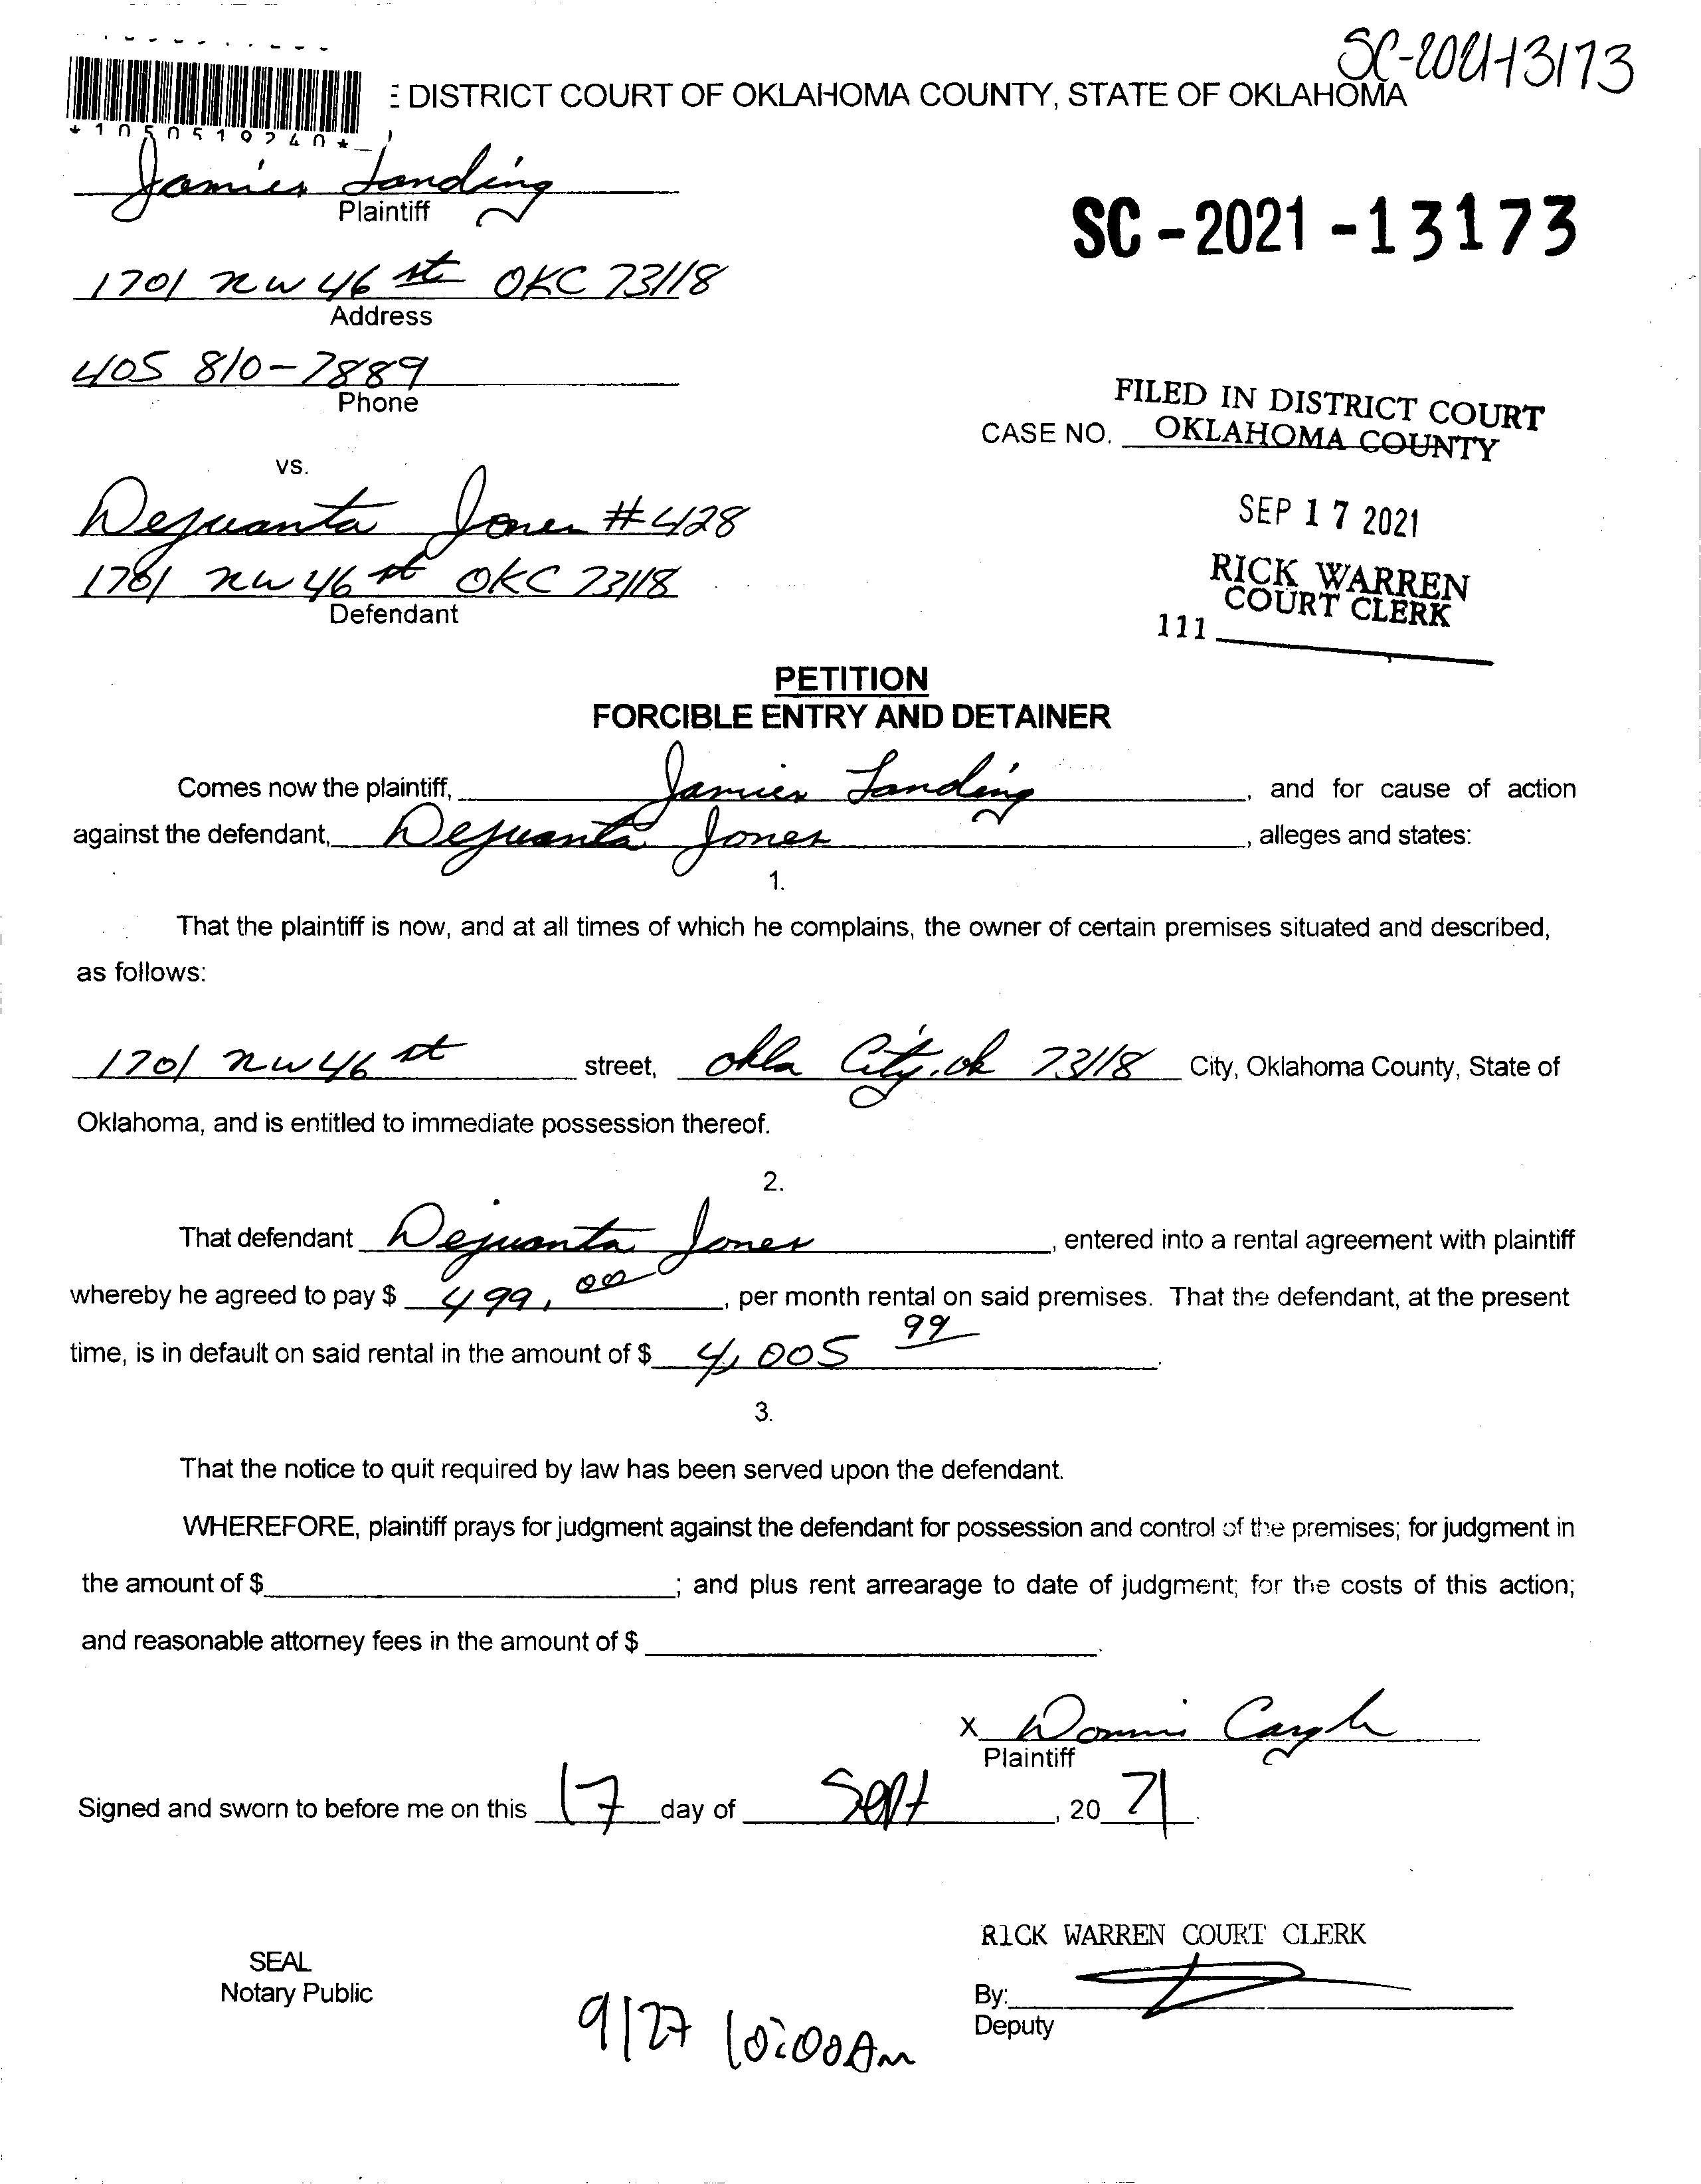 SC-2021-13173
DISTRICT COURT OF OKLAHOMA COUNTY, STATE OF OKLAHOMA
*1050519240*
Jamies Landing
Plaintiff
SC-2021-13173
1701 NW 46 st OKC 73118
Address
405 810-7889
Phone
FILED IN DISTRICT COURT
CASE NO. OKLAHOMA COUNTY
vs.
SEP 17 2021
Dejuanta Jones #428
RICK WARREN
COURT CLERK
1701 NW 46 st OKC 73118
Defendant
111
PETITION
FORCIBLE ENTRY AND DETAINER
Comes now the plaintiff, Jamies Landing, and for cause of action
against the defendant, Dejuanta Jones, alleges and states:
1.
That the plaintiff is now, and at all times of which he complains, the owner of certain premises situated and described,
as follows:
1701 NW 46 st street, Okla City, Ok 73118 City, Oklahoma County, State of
Oklahoma, and is entitled to immediate possession thereof.
2.
That defendant Dejuanta Jones, entered into a rental agreement with plaintiff
whereby he agreed to pay $ 499.00, per month rental on said premises. That the defendant, at the present
time, is in default on said rental in the amount of $ 4,005 99.
3.
That the notice to quit required by law has been served upon the defendant.
WHEREFORE, plaintiff prays for judgment against the defendant for possession and control of the premises; for judgment in
the amount of $ ; and plus rent arrearage to date of judgment; for the costs of this action;
and reasonable attorney fees in the amount of $ .
X
Plaintiff
Signed and sworn to before me on this 17 day of Sept, 20 21.
RICK WARREN COURT CLERK
SEAL
Notary Public
By:
Deputy
9/27 10:00 Am